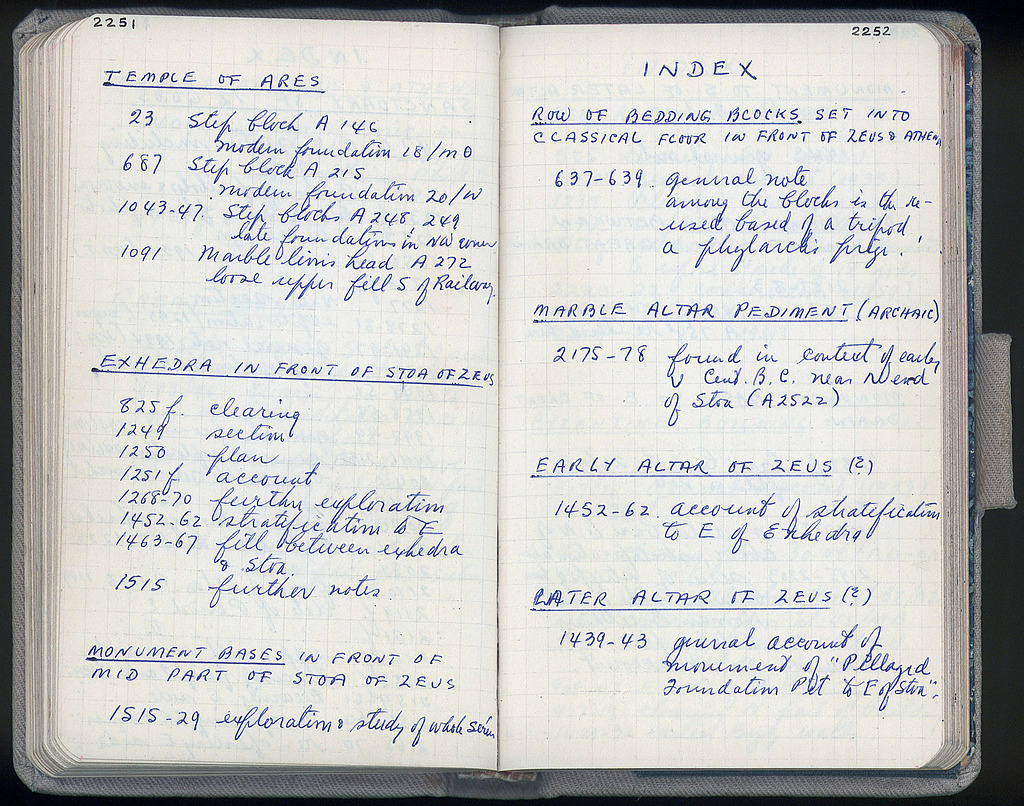 2251
TEMPLE OF ARES
23 Step block A 146
modern foundation 18/ΜΘ
687 Step block A 215
modern foundation 20/
1043-47. Step blocks A 248, 249
late foundations in NW corner
1091 Marble lion's head A 272
loose upper fill S of Railway.
EXHEDRA IN FRONT OF STOA OF ZEUS
825 f. clearing
1249 section
1250 plan
1251 f account
1268-70 further exploration
1452-62 stratification to E
1463-67 fill between exhedra
& Stoa.
1515 further notes
MONUMENT BASES IN FRONT OF
MID PART OF STOA OF ZEUS
1515-29 exploration & study of whole series
2252
INDEX
ROW OF BEDDING BLOCKS SET INTO
CLASSICAL FLOOR IN FRONT OF ZEUS & ATHENA
637-639. general note
among the blocks is the re-
used based of a tripod,
a phylarch's prize!
MARBLE ALTAR PEDIMENT (ARCHAIC)
2175-78 found in context of early
V Cent. B.C. near N end
of Stoa (A2522)
EARLY ALTAR OF ZEUS (?)
1452-62. account of stratification
to E of Exhedra
LATER ALTAR OF ZEUS (?)
1439-43 general account of
monument of "Pillaged
Foundation Pit to E of Stoa".